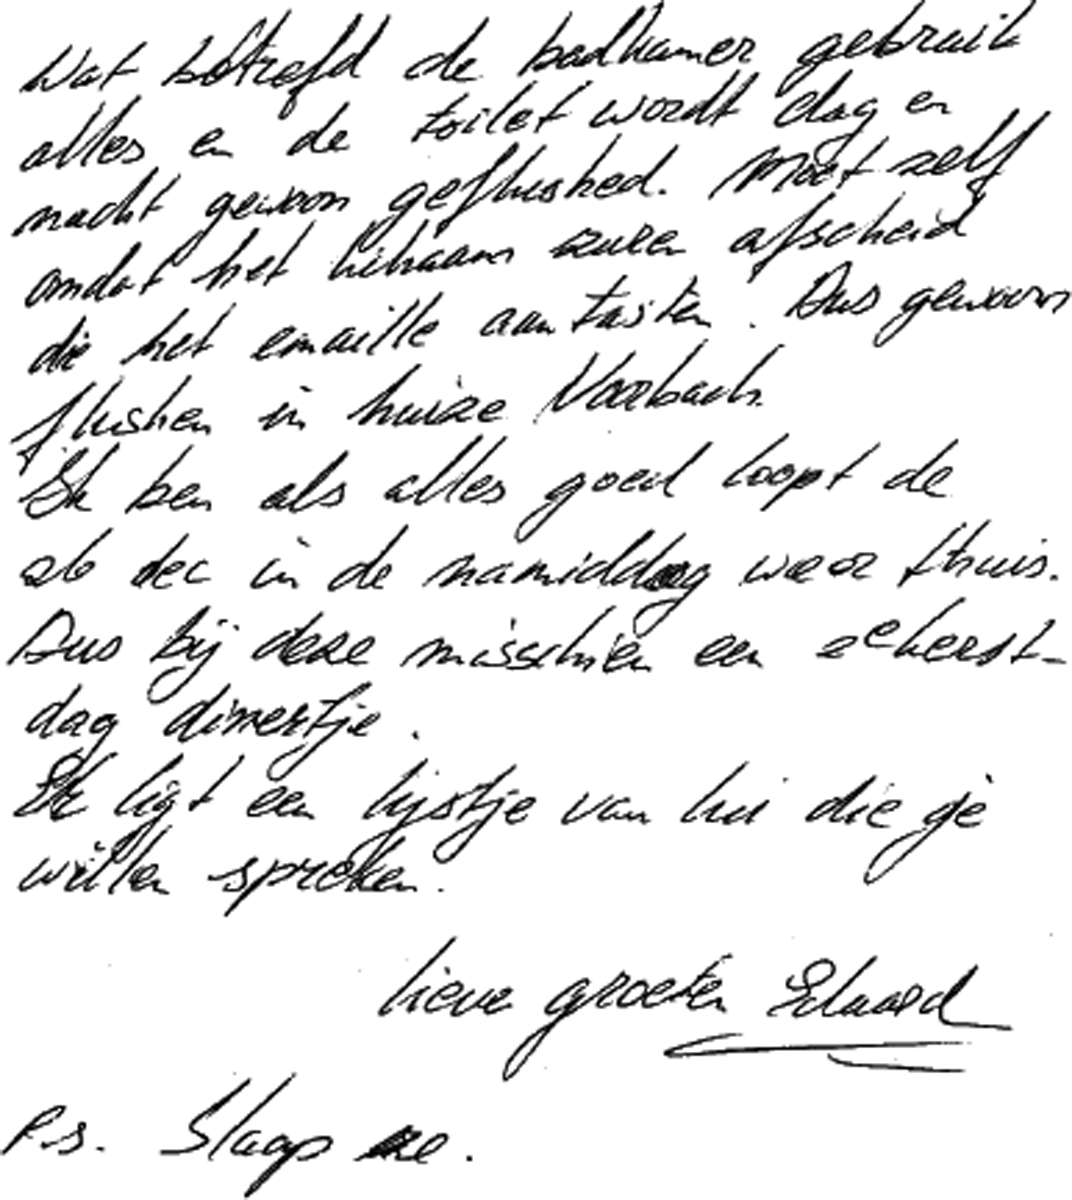 Wat betrefd de badkamer gebruik
alles en de toilet wordt dag en
nacht gewoon geflushed. Moet zelf
omdat het lichaam zuren afscheid
die het emaille aantasten. Dus gewoon
flushen in huize
Ik ben als alles goed loopt de
26 dec in de namiddag weer thuis.
Dus bij deze misschien een 2e kerst-
dag dinertje.
Er ligt een lijstje van lui die je
willen spreken.
lieve groeten
P.s. Slaap ze.